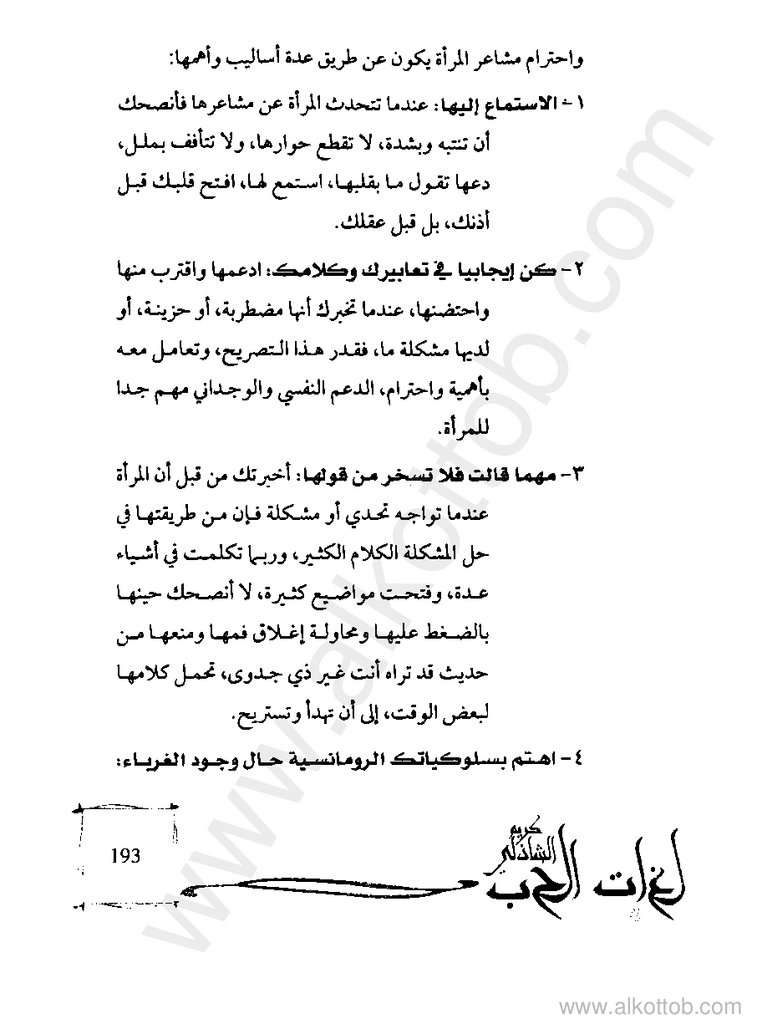 واحترام مشاعر المرأة يكون عن طريق عدة أساليب وأهمها:
١- الاستماع إليها: عندما تتحدث المرأة عن مشاعرها فأنصحك
أن تنتبه وبشدة، لا تقطع حوارها، ولا تتأفف بملل،
دعها تقول ما بقلبها، استمع لها، افتح قلبك قبل
أذنك، بل قبل عقلك.
٢- كن إيجابيا في تعابيرك وكلامك: ادعمها واقترب منها
واحتضنها، عندما تخبرك أنها مضطربة، أو حزينة، أو
لديها مشكلة ما، فقدر هذا التصريح، وتعامل معه
بأهمية واحترام، الدعم النفسي والوجداني مهم جدا
للمرأة.
٣- مهما قالت فلا تسخر من قولها: أخبرتك من قبل أن المرأة
عندما تواجه تحدي أو مشكلة فإن من طريقتها في
حل المشكلة الكلام الكثير، وربما تكلمت في أشياء
عدة، وفتحت مواضيع كثيرة، لا أنصحك حينها
بالضغط عليها ومحاولة إغلاق فمها ومنعها من
حديث قد تراه أنت غير ذي جدوى، تحمل كلامها
لبعض الوقت، إلى أن تهدأ وتستريح.
٤- اهتم بسلوكياتك الرومانسية حال وجود الغرباء:
كريم
الشاذلي
لغات الحب
193
www.alkottob.com
www.alkottob.com